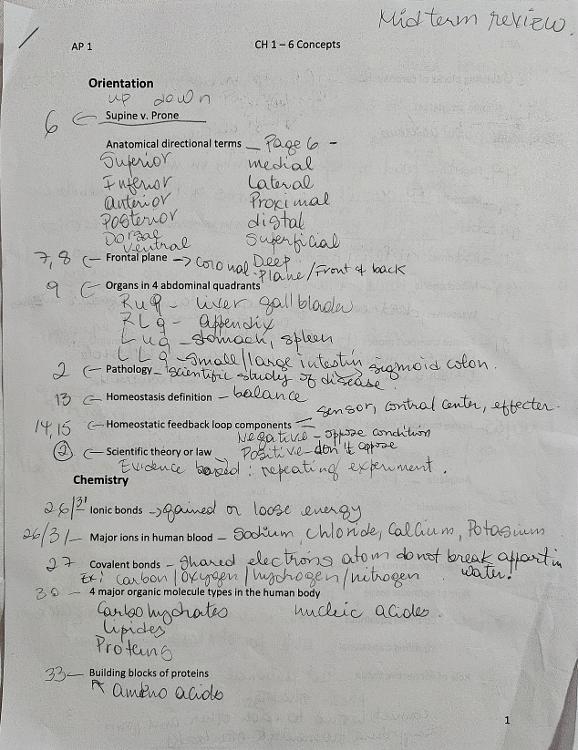 Midterm review.
AP 1 CH 1 – 6 Concepts
Orientation
up down
6 Supine v. Prone
Anatomical directional terms – Page 6 -
Superior medial
Inferior Lateral
anterior Proximal
Posterior distal
Dorsal Superficial
Ventral Deep
7,8 Frontal plane → coronal Plane/Front & back
9 Organs in 4 abdominal quadrants
RuQ - liver gallbladder
RLq - appendix
Luq - stomach, spleen
LLq - small/large intestin sigmoid colon.
2 Pathology - scientific study of disease.
13 Homeostasis definition - balance
14,15 Homeostatic feedback loop components = sensor, control center, effecter.
Negative - oppose condition
2 Scientific theory or law Positive - don't oppose
Evidence based : repeating experiment.
Chemistry
26/31 Ionic bonds → gained or loose energy
26/31 Major ions in human blood - Sodium, chloride, Calcium, Potasium
27 Covalent bonds - shared electrons atom do not break appart in
Ex: carbon/oxygen/hydrogen/nitrogen water!
30 4 major organic molecule types in the human body
Carbohydrates nucleic acides.
Lipides
Proteins
33 Building blocks of proteins
amino acids
1